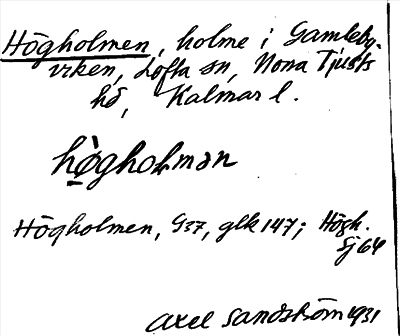 Högholmen, holme i Gamleby-
viken, Lofta sn, Norra Tjusts
hd, Kalmar l.
hø̀gholmən
Högholmen, G37, glk 147; Högh.
Sj 64
Axel Sandström 1931